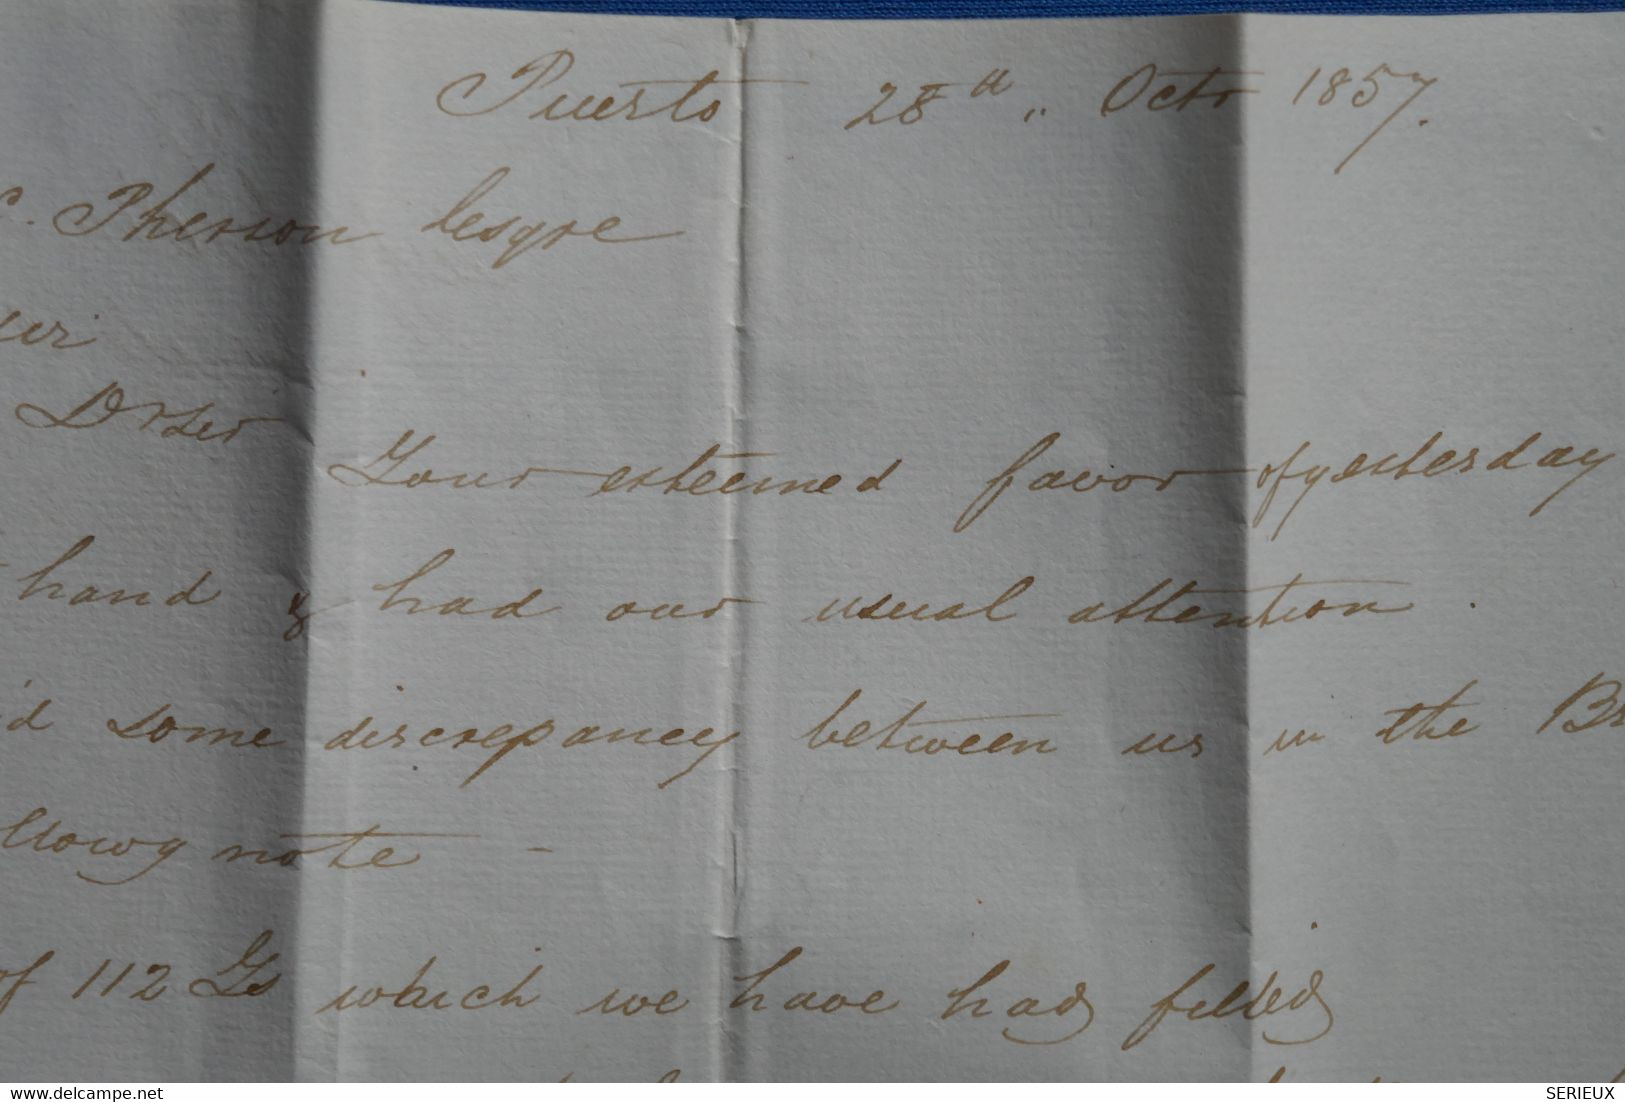 Puerto 28th " Octr 1857.
c. Pherson Esqre
Dr Sir
Your esteemed favor of yesterday
hand & had our usual attention.
'd some discrepancy between us in the
llowg note -
of 112 Gs which we have had filled
SERIEUX